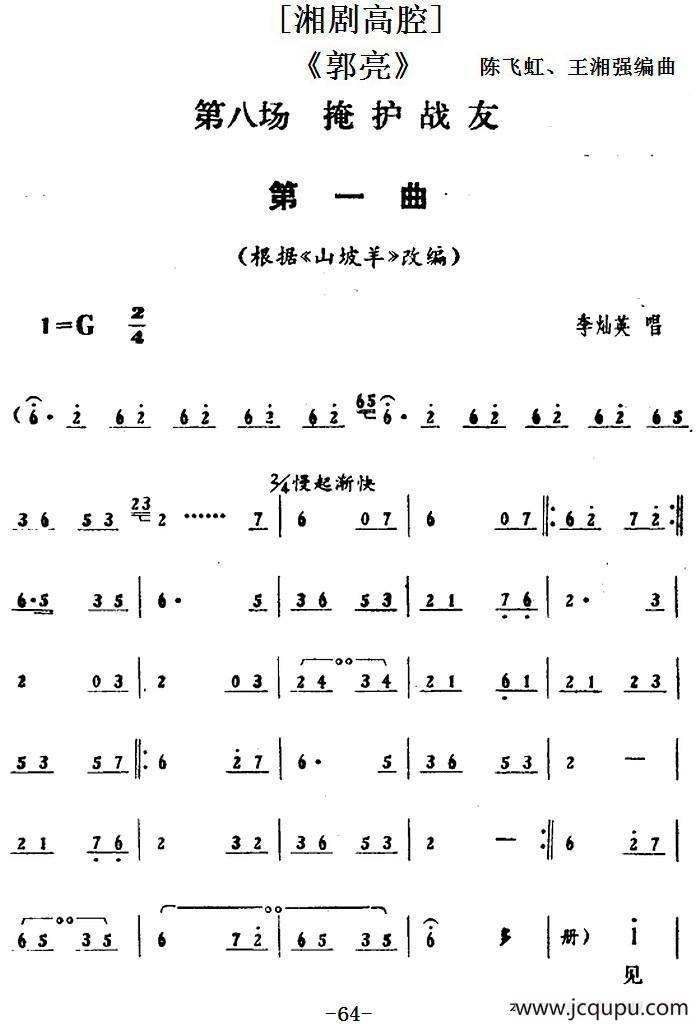 [湘剧高腔]
《郭亮》 陈飞虹、王湘强编曲
第八场 掩护战友
第一曲
（根据《山坡羊》改编）
1=G 2/4 李灿英 唱
( 6· 2 6 2 6 2 6 2 6 2 65 6· 2 6 2 6 2 6 2 6 5
2/4慢起渐快
3 6 5 3 23 2 …… 7 | 6 0 7 | 6 0 7 ‖: 6 2 7 2 :‖
6·5 3 5 | 6· 5 | 3 6 5 3 | 2 1 7 6 | 2· 3 |
2 0 3 | 2 0 3 | 2 4 3 4 | 2 1 6 1 | 2 1 2 3 |
5 3 5 7 ‖: 6 2 7 | 6· 5 | 3 6 5 3 | 2 — |
2 1 7 6 | 2 3 2 | 3 6 5 3 | 2 — :‖ 6 2 7 |
6 5 3 5 | 6 7 2 | 6 5 3 5 | 6 多 | 册) 1 |
见
-64-
www.jcqupu.com